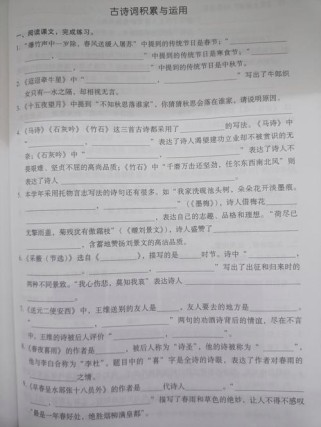 古诗词积累与运用
一、阅读课文，完成练习。
1."爆竹声中一岁除，春风送暖入屠苏"中提到的传统节日是春节；"
"中提到的传统节日是寒食节；"
"中提到的传统节日是中秋节。
2.《迢迢牵牛星》中"，"写出了牛郎织
女只有一水之隔，却相视无言。
3.《十五夜望月》中提到"不知秋思落谁家"，你猜猜秋思会落在谁家，请说明原因。
4.《马诗》《石灰吟》《竹石》这三首古诗都采用了的写法。《马诗》中
"，"表达了诗人渴望建功立业却不被赏识的无
奈；《石灰吟》中"，"表达了诗人不
畏艰难、坚贞不屈的高尚品质；《竹石》中"千磨万击还坚劲，任尔东西南北风"则
表达了诗人
5.本学年采用托物言志写法的诗句还有很多，如"我家洗砚池头树，朵朵花开淡墨痕。
，"（《墨梅》），诗人借梅花
，表达自己的志趣、品格和理想。"荷尽已
无擎雨盖，菊残犹有傲霜枝"（《赠刘景文》），诗人盛赞了
，含蓄地赞扬刘景文的高洁品质。
6.《采薇（节选）》选自《》，描写的是对节。诗中"，
"写出了出征和归来时的
两种不同景致。"我心伤悲，莫知我哀"表达诗人
7.《送元二使安西》中，王维送别的友人是，友人要去的地方是，
"，"两句的劝酒诗背后的情谊，尽在不言
中，王维的诗被后人评价"，"
8.《春夜喜雨》的作者是，被后人称为"诗圣"，他的诗被称为""，
他与李白合称为"李杜"。题目中的"喜"字是全诗的诗眼，表达了作者对春雨的
之情。
9.《早春呈水部张十八员外》的作者是代诗人
"，"描写了春雨和草色的绝妙，让人不得不感叹
"最是一年春好处，绝胜烟柳满皇都"。